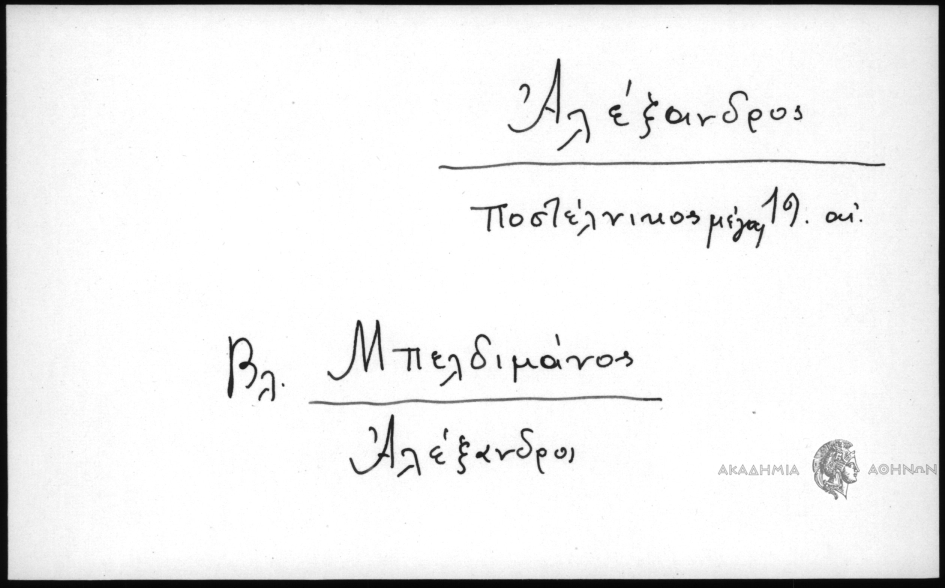 Ἀλέξανδρος
ποστέλνικος μέγας 19. αἰ.
Βλ. Μπελδιμάνος
Ἀλέξανδρος
ΑΚΑΔΗΜΙΑ ΑΘΗΝΩΝ